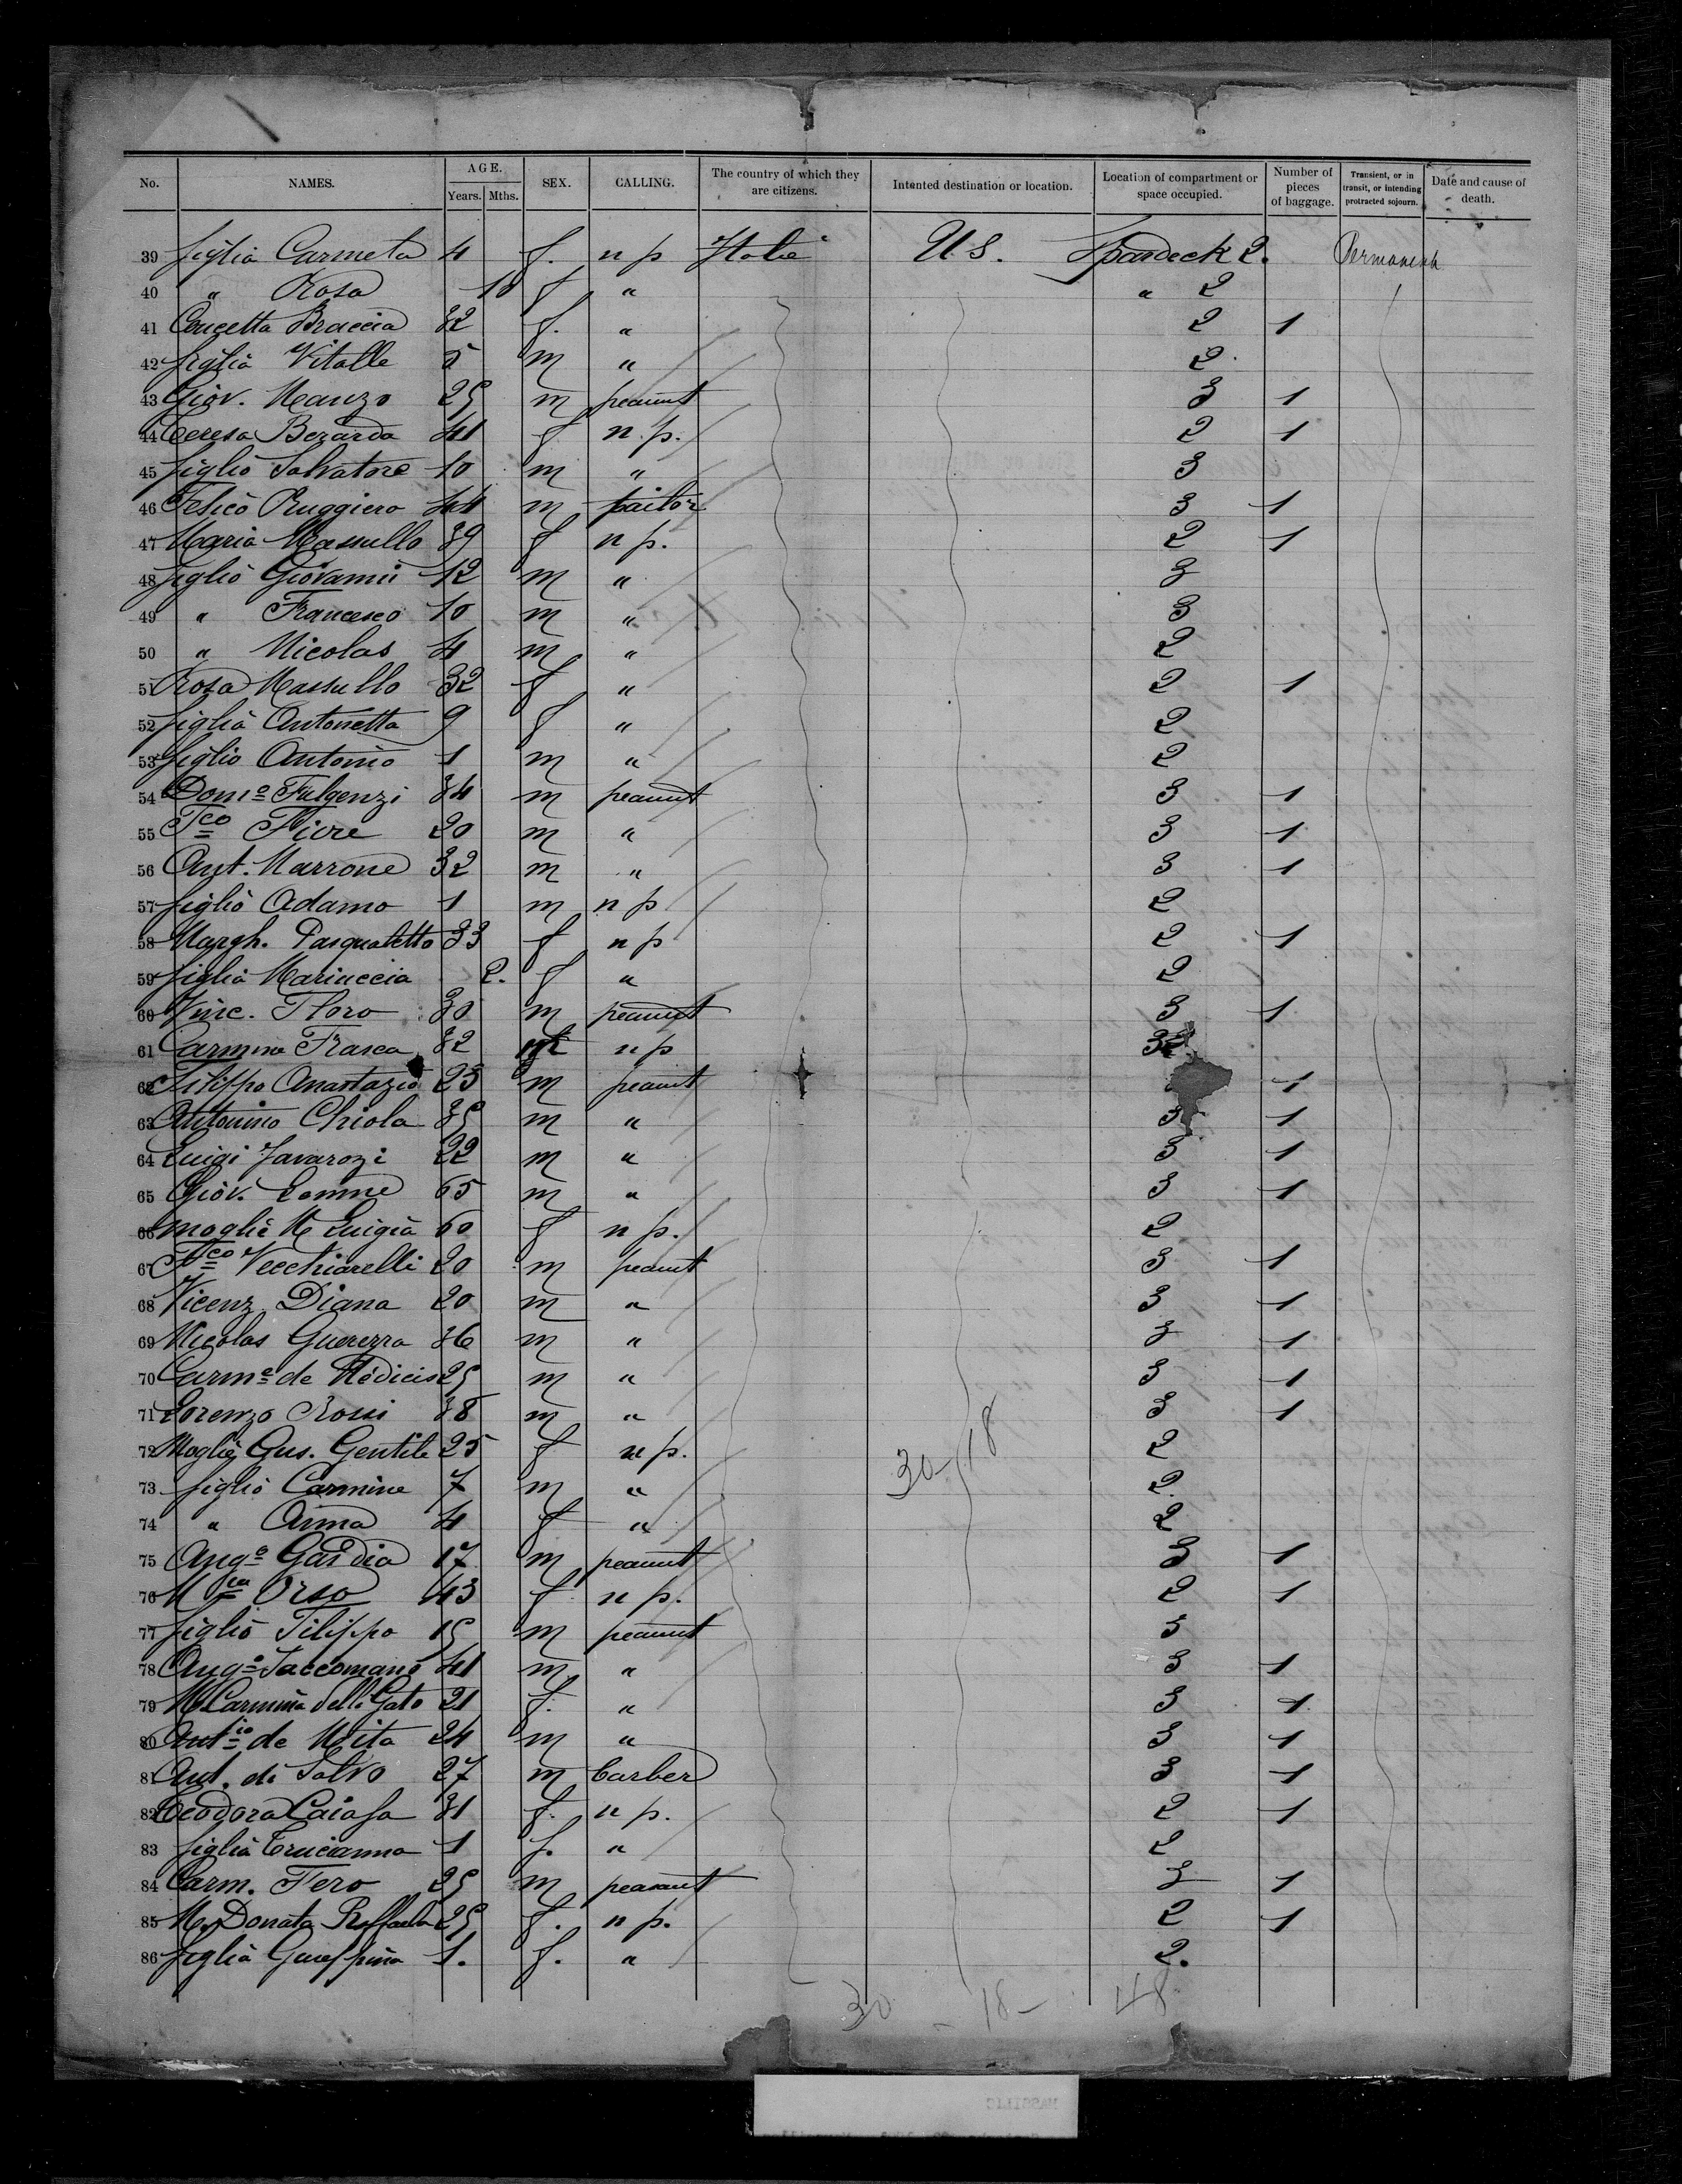 No. NAMES. AGE. Years. Mths. SEX. CALLING. The country of which they are citizens. Intented destination or location. Location of compartment or space occupied. Number of pieces of baggage. Transient, or in transit, or intending protracted sojourn. Date and cause of death.
39 figlia Carmela 4 f. n p Italie U S. Spardeck 2. Permanent
40 " Rosa 10 f " " 2
41 Concetta Braccia 32 f. " 2 1
42 figlio Vitalle 5 m " 2.
43 Giov. Manzo 25 m peasant 3 1
44 Teresa Berarda 41 f n. p. 2 1
45 figlio Salvatore 10 m " 3
46 Felice Ruggiero 44 m 3 1
47 Maria Massullo 39 f n p. 2 1
48 figlio Giovanni 12 m " 3
49 " Francesco 10 m " 3
50 " Nicolas 4 m " 2
51 Rosa Massullo 32 f " 2 1
52 figlia Antonetta 9 f " 2
53 figlio Antonio 1 m " 2
54 Domo Fulgenzi 34 m peasant 3 1
55 Fco Fiore 20 m " 3 1
56 Ant. Marrone 32 m " 3 1
57 figlio Adamo 1 m n p 2
58 Margh. Pasqualetto 33 f n p 2 1
59 figlia Mariuccia 2. f " 2
60 Vinc. Floro 30 m peasant 3 1
61 Carmina Frasca 32 n p
62 Filippo Anastazio 25 m peasant 1
63 Antonino Chiola 35 m " 3 1
64 Luigi Javarozi 22 m " 3 1
65 Giov. Lemme 65 m " 3 1
66 moglie M Luigia 60 f n p. 2
67 Fco Vecchiarelli 20 m peasant 3 1
68 Vicenz Diana 20 m " 3 1
69 Nicolas Guerezra 36 m " 3 1
70 Carmo de Médicis 25 m " 3 1
71 Lorenzo Rossi 38 m " 3 1
72 Moglie Gus. Gentile 25 f n p. 2
30-18
73 figlio Carmine 7 m " 2.
74 " Anna 4 f " 2
75 Ango Gardia 17 m peasant 3 1
76 Mia Orso 43 f n p. 2 1
77 figlio Filippo 15 m peasant 3
78 Ango Iaccomano 41 m " 3 1
79 M Carmina delli Gato 21 f. " 3 1
80 Antio de Mita 24 m " 3 1
81 Ant. di Salvo 27 m barber 3 1
82 Teodora Caiafa 31 f. n p. 2 1
83 figlia Crucianna 1 f. " 2
84 Carm. Fero 25 m peasant 3 1
85 M. Donata Raffaela 25 f. n p. 2 1
86 figlia Guiseppina 1. f. " 2.
30 - 18 - 48